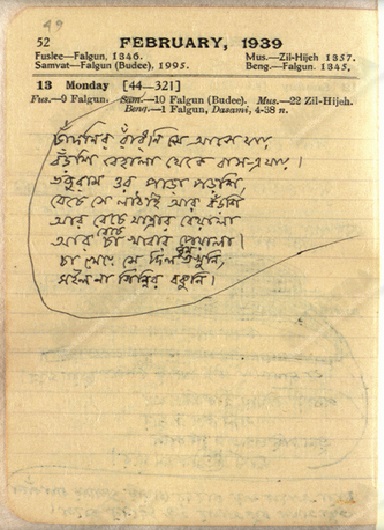 49
52 FEBRUARY, 1939
Fuslee—Falgun, 1346. Mus.—Zil-Hijeh 1357.
Samvat—Falgun (Budee), 1995. Beng.—Falgun 1345.
13 Monday [44—321]
Fus.—9 Falgun. Sam.—10 Falgun (Budee). Mus.—22 Zil-Hijeh.
Beng.—1 Falgun, Dasami, 4-38 n.
রাঁধুনি সে আসে যায়
বেহালা থেকে বাস-এ যায়।
ওর পাড়া পড়শি,
বেচে সে লাঠাই আর বঁড়শি
আর বেচে যাত্রার বেয়ালা
আর বেচে চা খাবার পেয়ালা।
চা খেয়ে সে দিল ঘুম তখুনি,
সইল না গিন্নির বকুনি।